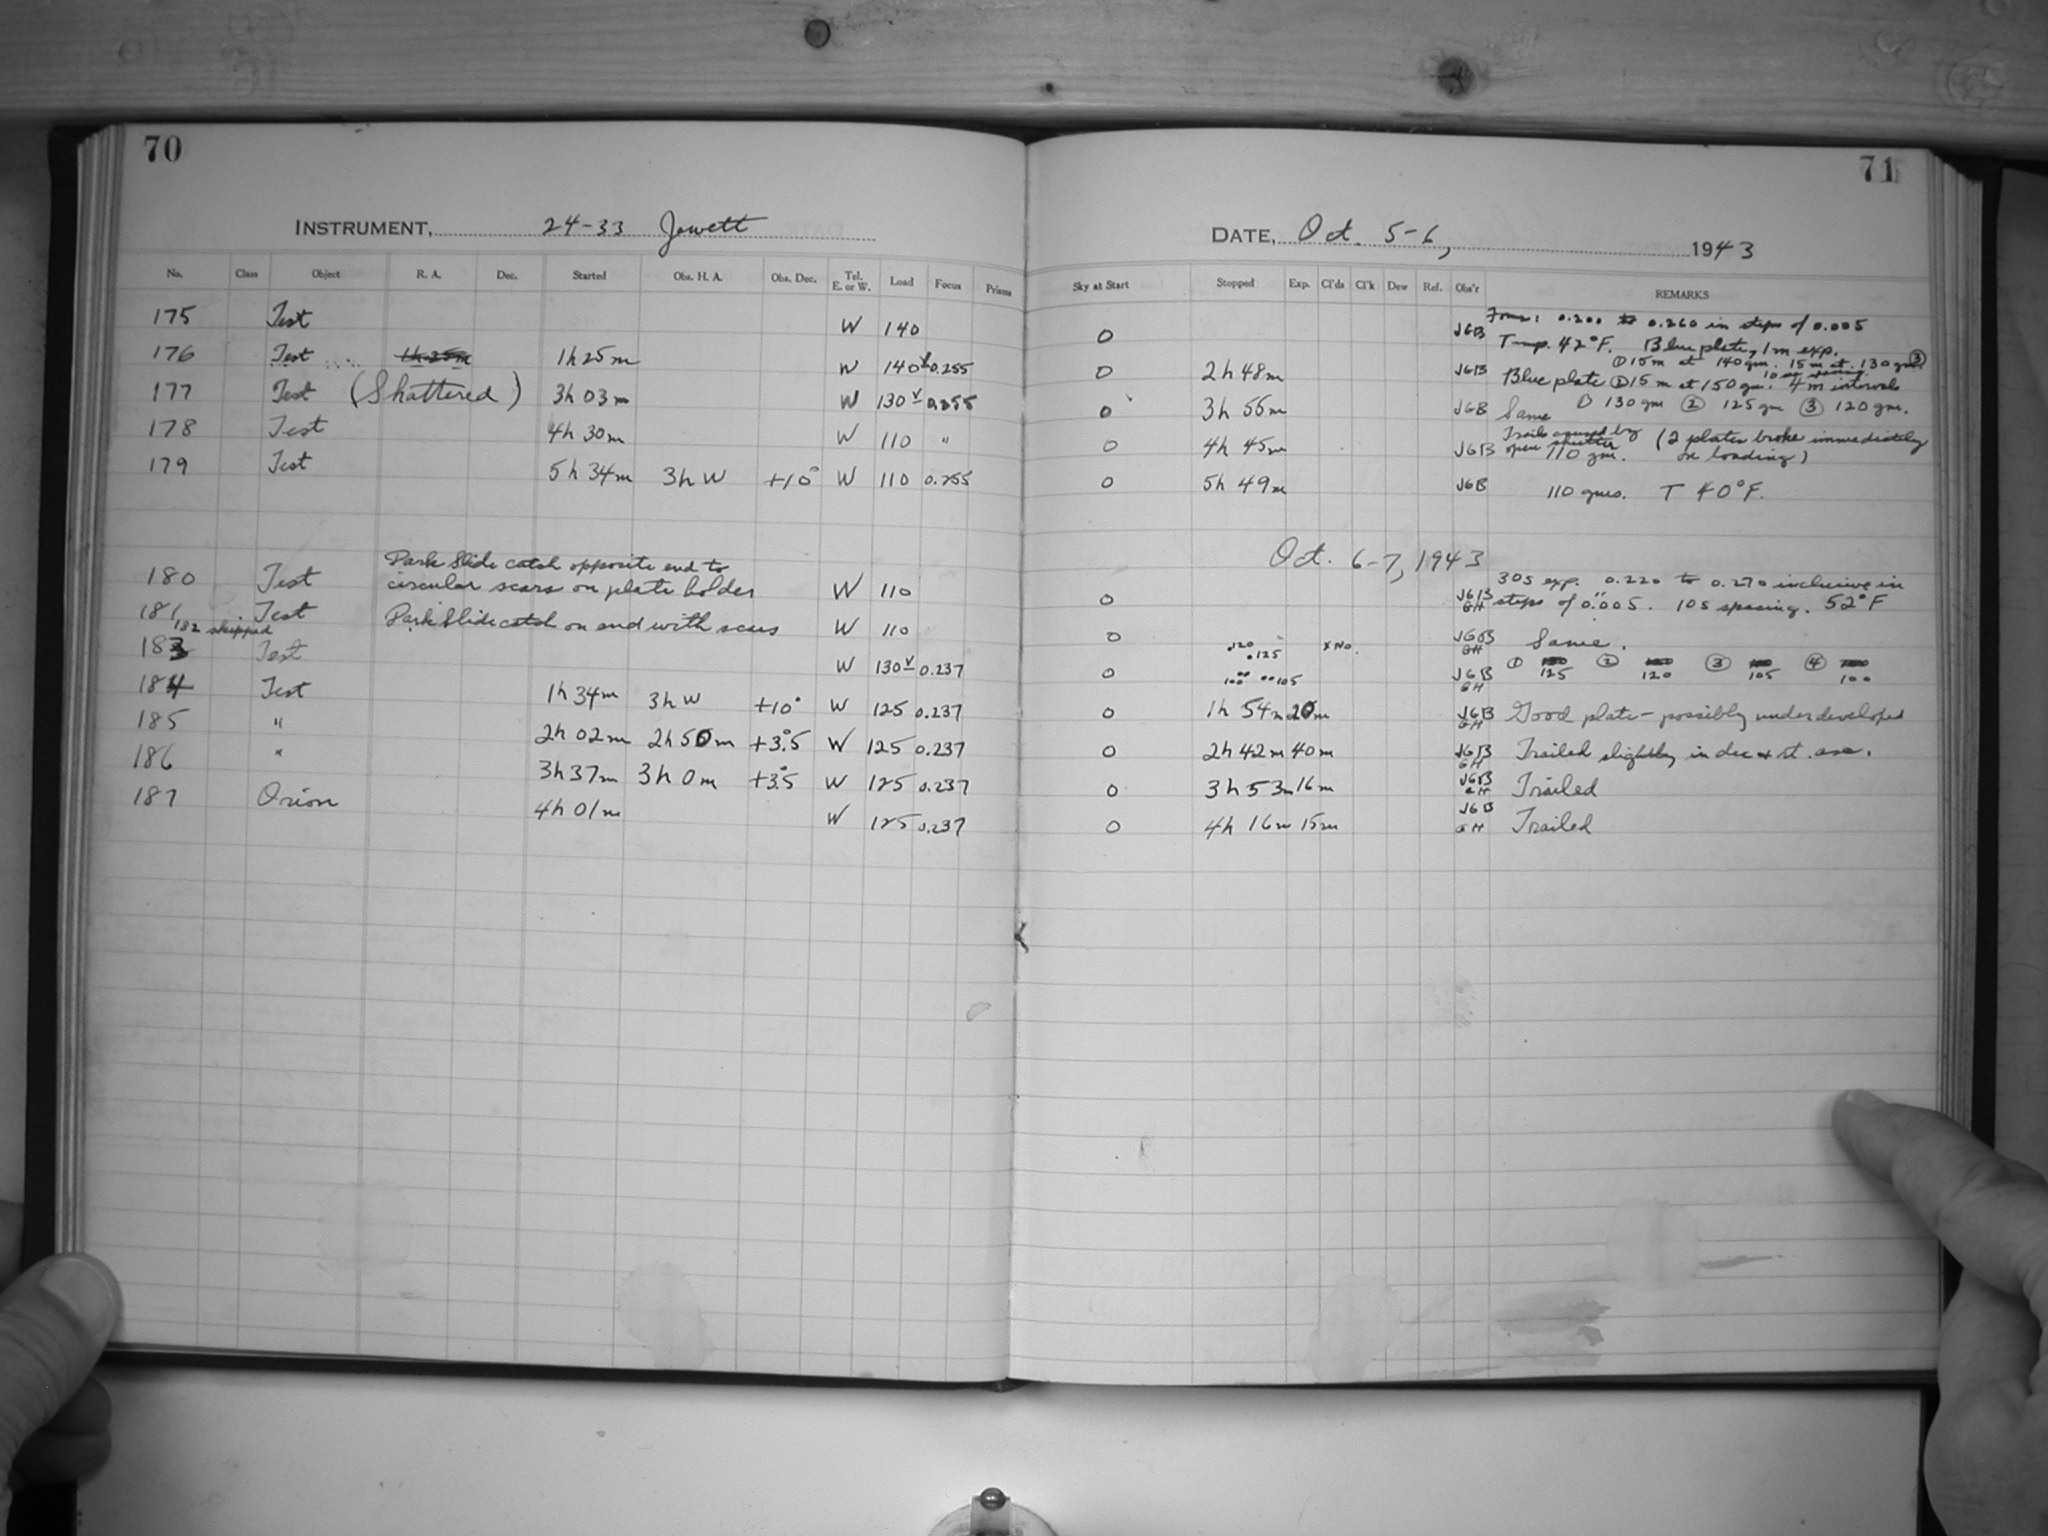 70
71
INSTRUMENT, 24-33 Jewett
DATE, Oct. 5-6, 1943
No. Class Object R. A. Dec. Started Obs. H. A. Obs. Dec. Tel. E. or W. Load Focus Prisms Sky at Start Stopped Exp. Cl'ds Cl'k Dew Ref. Obs'r REMARKS
175 Test W 140 0 JGB Focus: 0.200 to 0.260 in steps of 0.005
Temp. 42°F. Blue plate, 1m exp.
176 Test 1h 25m 1h 25m W 140 V 0.255 0 2h 48m JGB ① 15m at 140 gm. 15m at 130 gm. ③
10 sec spacing
Blue plate ② 15m at 150 gm. 4m intervals
177 Test (Shattered) 3h 03m W 130 V 0.255 0 3h 55m JGB Same ① 130 gm ② 125 gm ③ 120 gm.
178 Test 4h 30m W 110 " 0 4h 45m JGB Trails caused by open shutter 110 gm. (2 plates broke immediately on loading)
179 Test 5h 34m 3h W +10° W 110 0.255 0 5h 49m JGB 110 gms. T 40°F.
Oct. 6-7, 1943
180 Test Dark Slide catch opposite end to
circular scars on plate holder W 110 0 JGB GH 30s exp. 0.220 to 0.270 inclusive in
steps of 0.005. 10s spacing. 52°F
181 Test Dark Slide catch on end with scars W 110 0 JGB GH Same.
182 skipped
183 Test W 130 V 0.237 0 .120 .125 100 105 x No. JGB GH ① 125 ② 120 ③ 105 ④ 100
184 Test 1h 34m 3h W +10° W 125 0.237 0 1h 54m 20m JGB GH Good plate - possibly underdeveloped
185 " 2h 02m 2h 50m +3.5° W 125 0.237 0 2h 42m 40m JGB GH Trailed slightly in dec & rt. asc.
186 " 3h 37m 3h 0m +3.5° W 125 0.237 0 3h 53m 16m JGB GH Trailed
187 Orion 4h 01m W 125 0.237 0 4h 16m 15m JGB GH Trailed